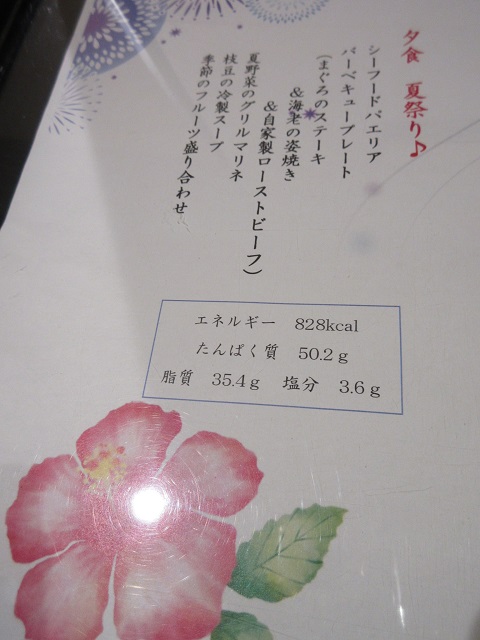 夕食 夏祭り♪
シーフードパエリア
バーベキュープレート
(まぐろのステーキ
&海老の姿焼き
&自家製ローストビーフ)
夏野菜のグリルマリネ
枝豆の冷製スープ
季節のフルーツ盛り合わせ
エネルギー 828kcal
たんぱく質 50.2g
脂質 35.4g 塩分 3.6g